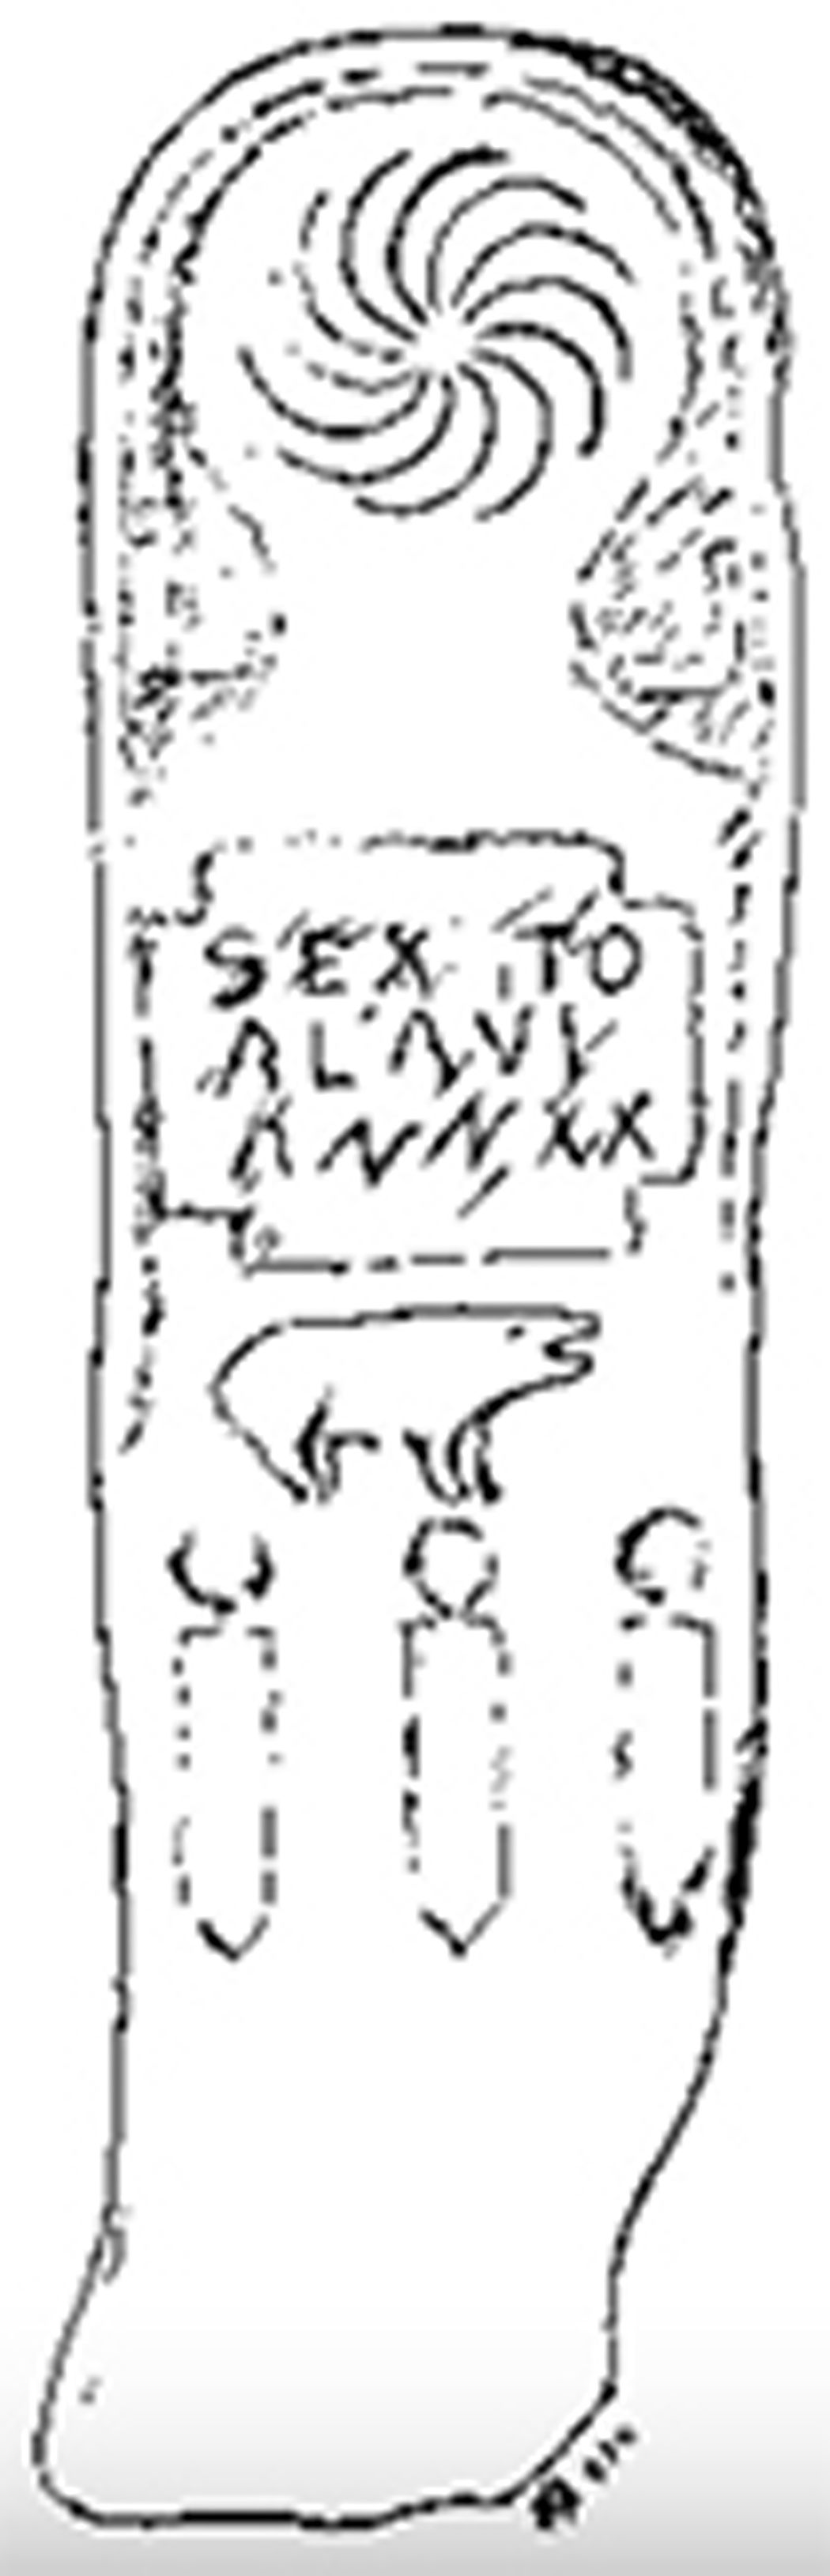 SEXTO
AL'AVV
ANNXX